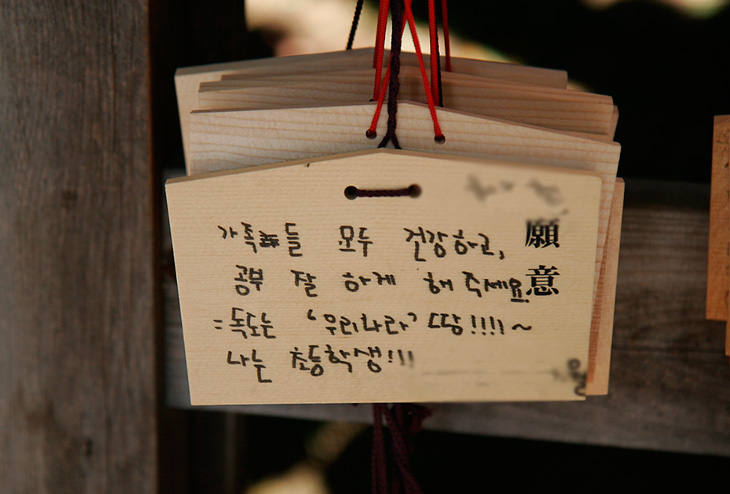 가족들 모두 건강하고,
공부 잘 하게 해 주세요.
=독도는 '우리나라' 땅!!!!~
나는 초등학생!!!
願意